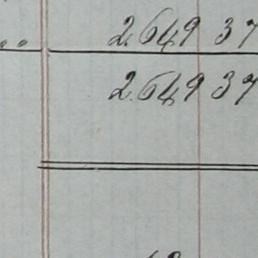 .. 2649 37
2649 37